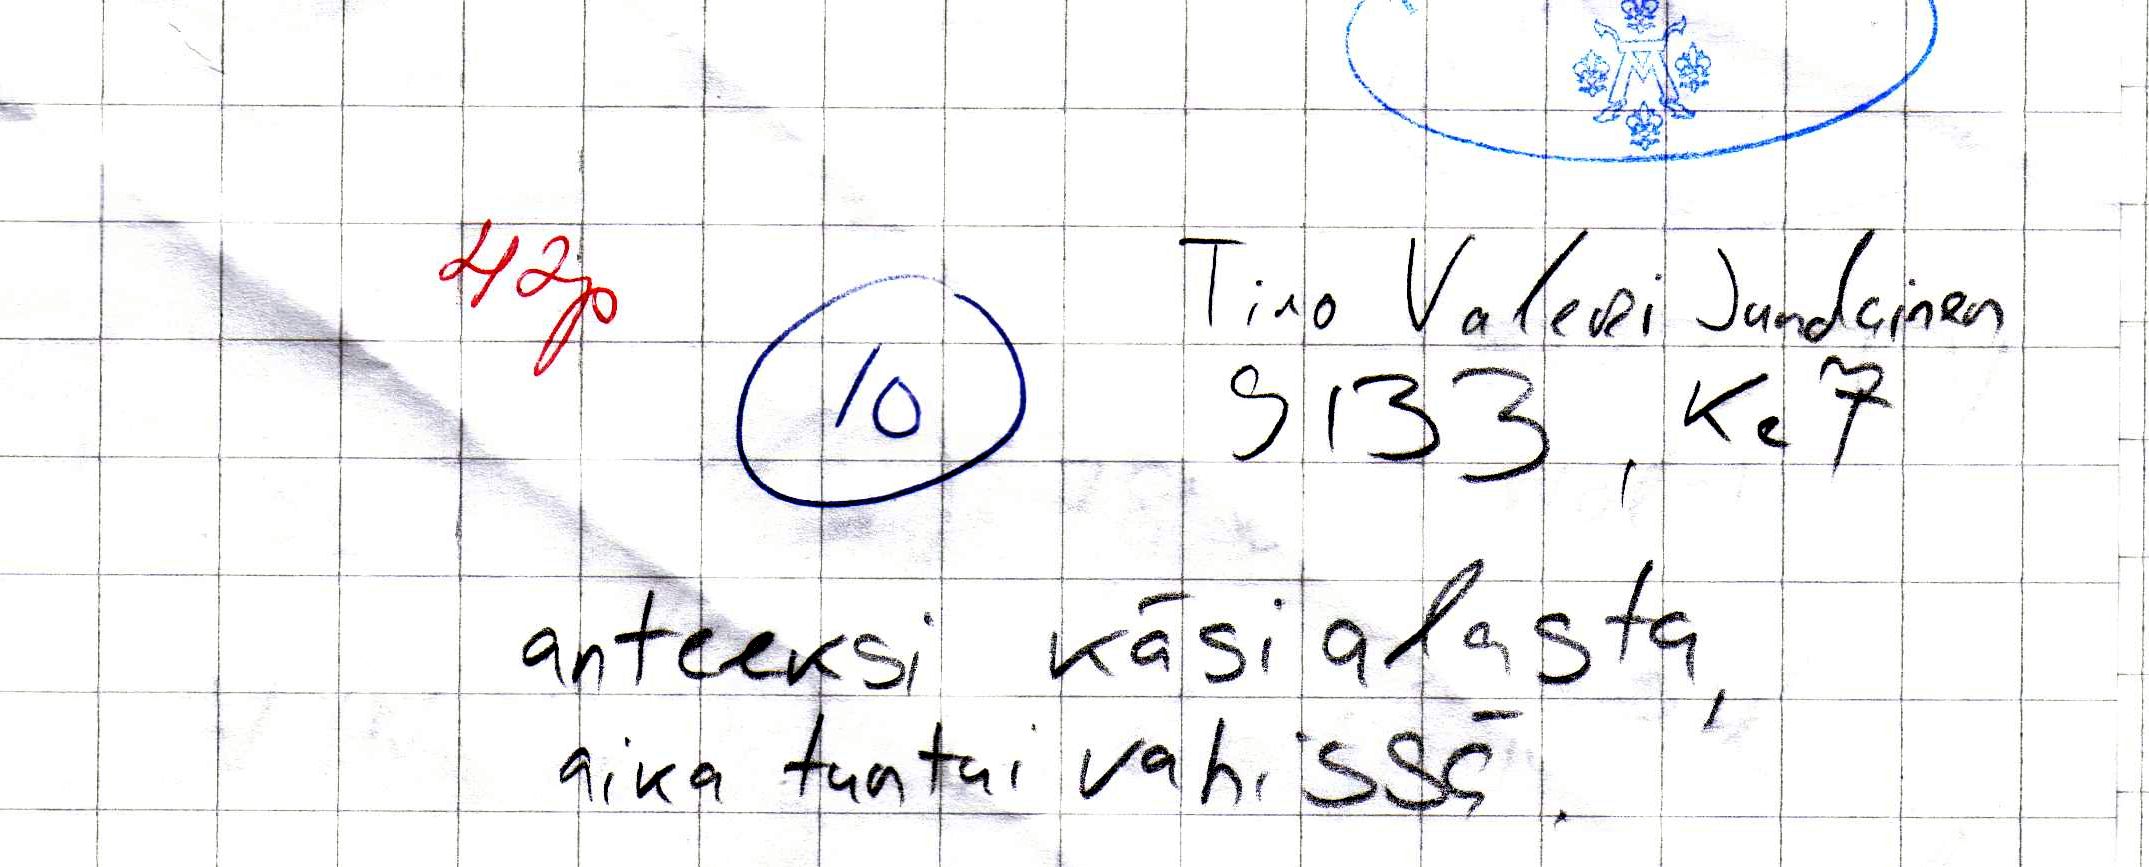 42p
10
Timo Valeri Jundainen
9133, Ke7
anteeksi käsialasta,
aika tuntui vahissä.